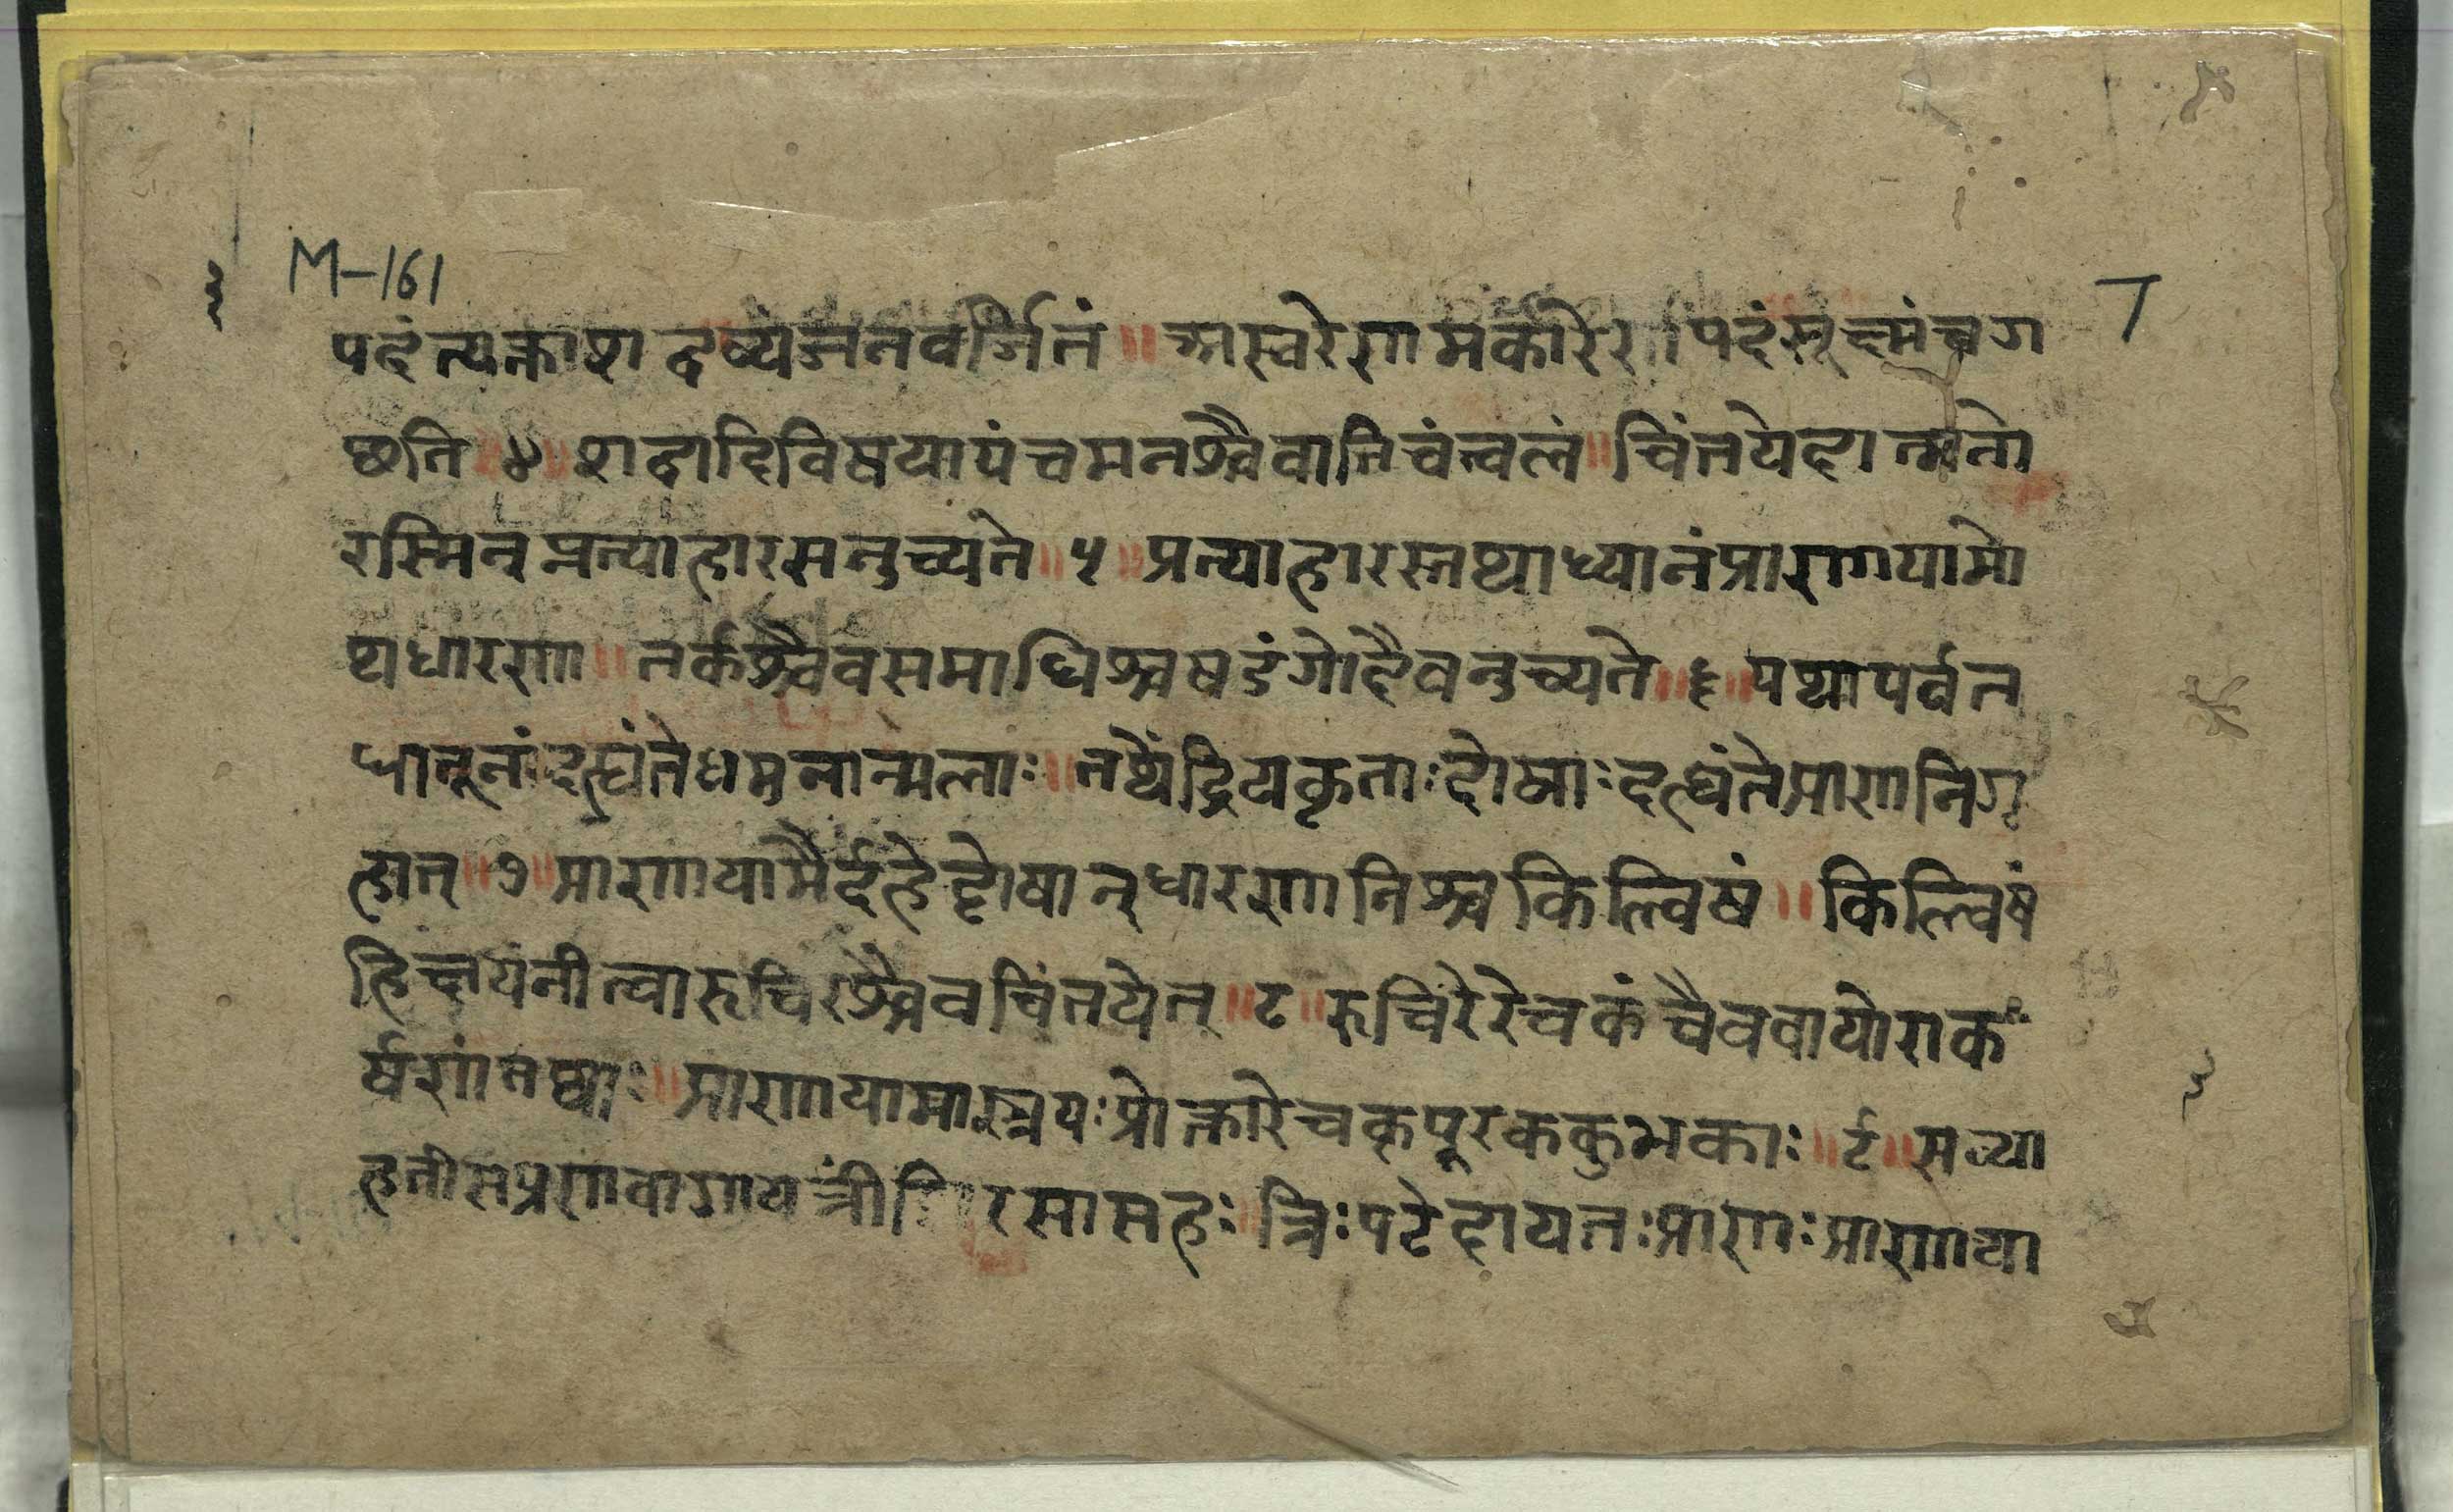 M-161
पदंत्यक्ताशद्बव्यंजनवर्जितं ॥ अस्वरेणमकारेण पदंसूक्ष्मंचग
छति ॥ ४ ॥ शब्दादिविषयापंचमनश्चैवातिचंचलं ॥ चिंतयेदात्मनो
रस्मिन् प्रत्याहारसनुच्यते ॥ ५ ॥ प्रत्याहारस्तथाध्यानंप्राणायामो
थधारणा ॥ तर्कश्चैवसमाधिश्चषडंगोहैवनुच्यते ॥ ६ ॥ यथापर्वत
धातूनांदह्यंतेधमनान्मलाः ॥ तथेंद्रियकृताःदोषाःदह्यंतेप्राणनिग्र
हात् ॥ ७ ॥ प्राणायामैर्दहेद्दोषान्धारणानिश्चकिल्विषं ॥ किल्विषं
हिक्षयंनीत्वारुचिरंश्चैवचिंतयेत् ॥ ८ ॥ रुचिरेरेचकंचैववायोराक
र्षणंतथाः ॥ प्राणायामास्त्रयःप्रोक्तारेचकपूरककुंभकाः ॥ ९ ॥ सव्या
हतीसप्रणवागायत्रीं सिरसासहः ॥ त्रिःपठेदायतःप्राणःप्राणाया